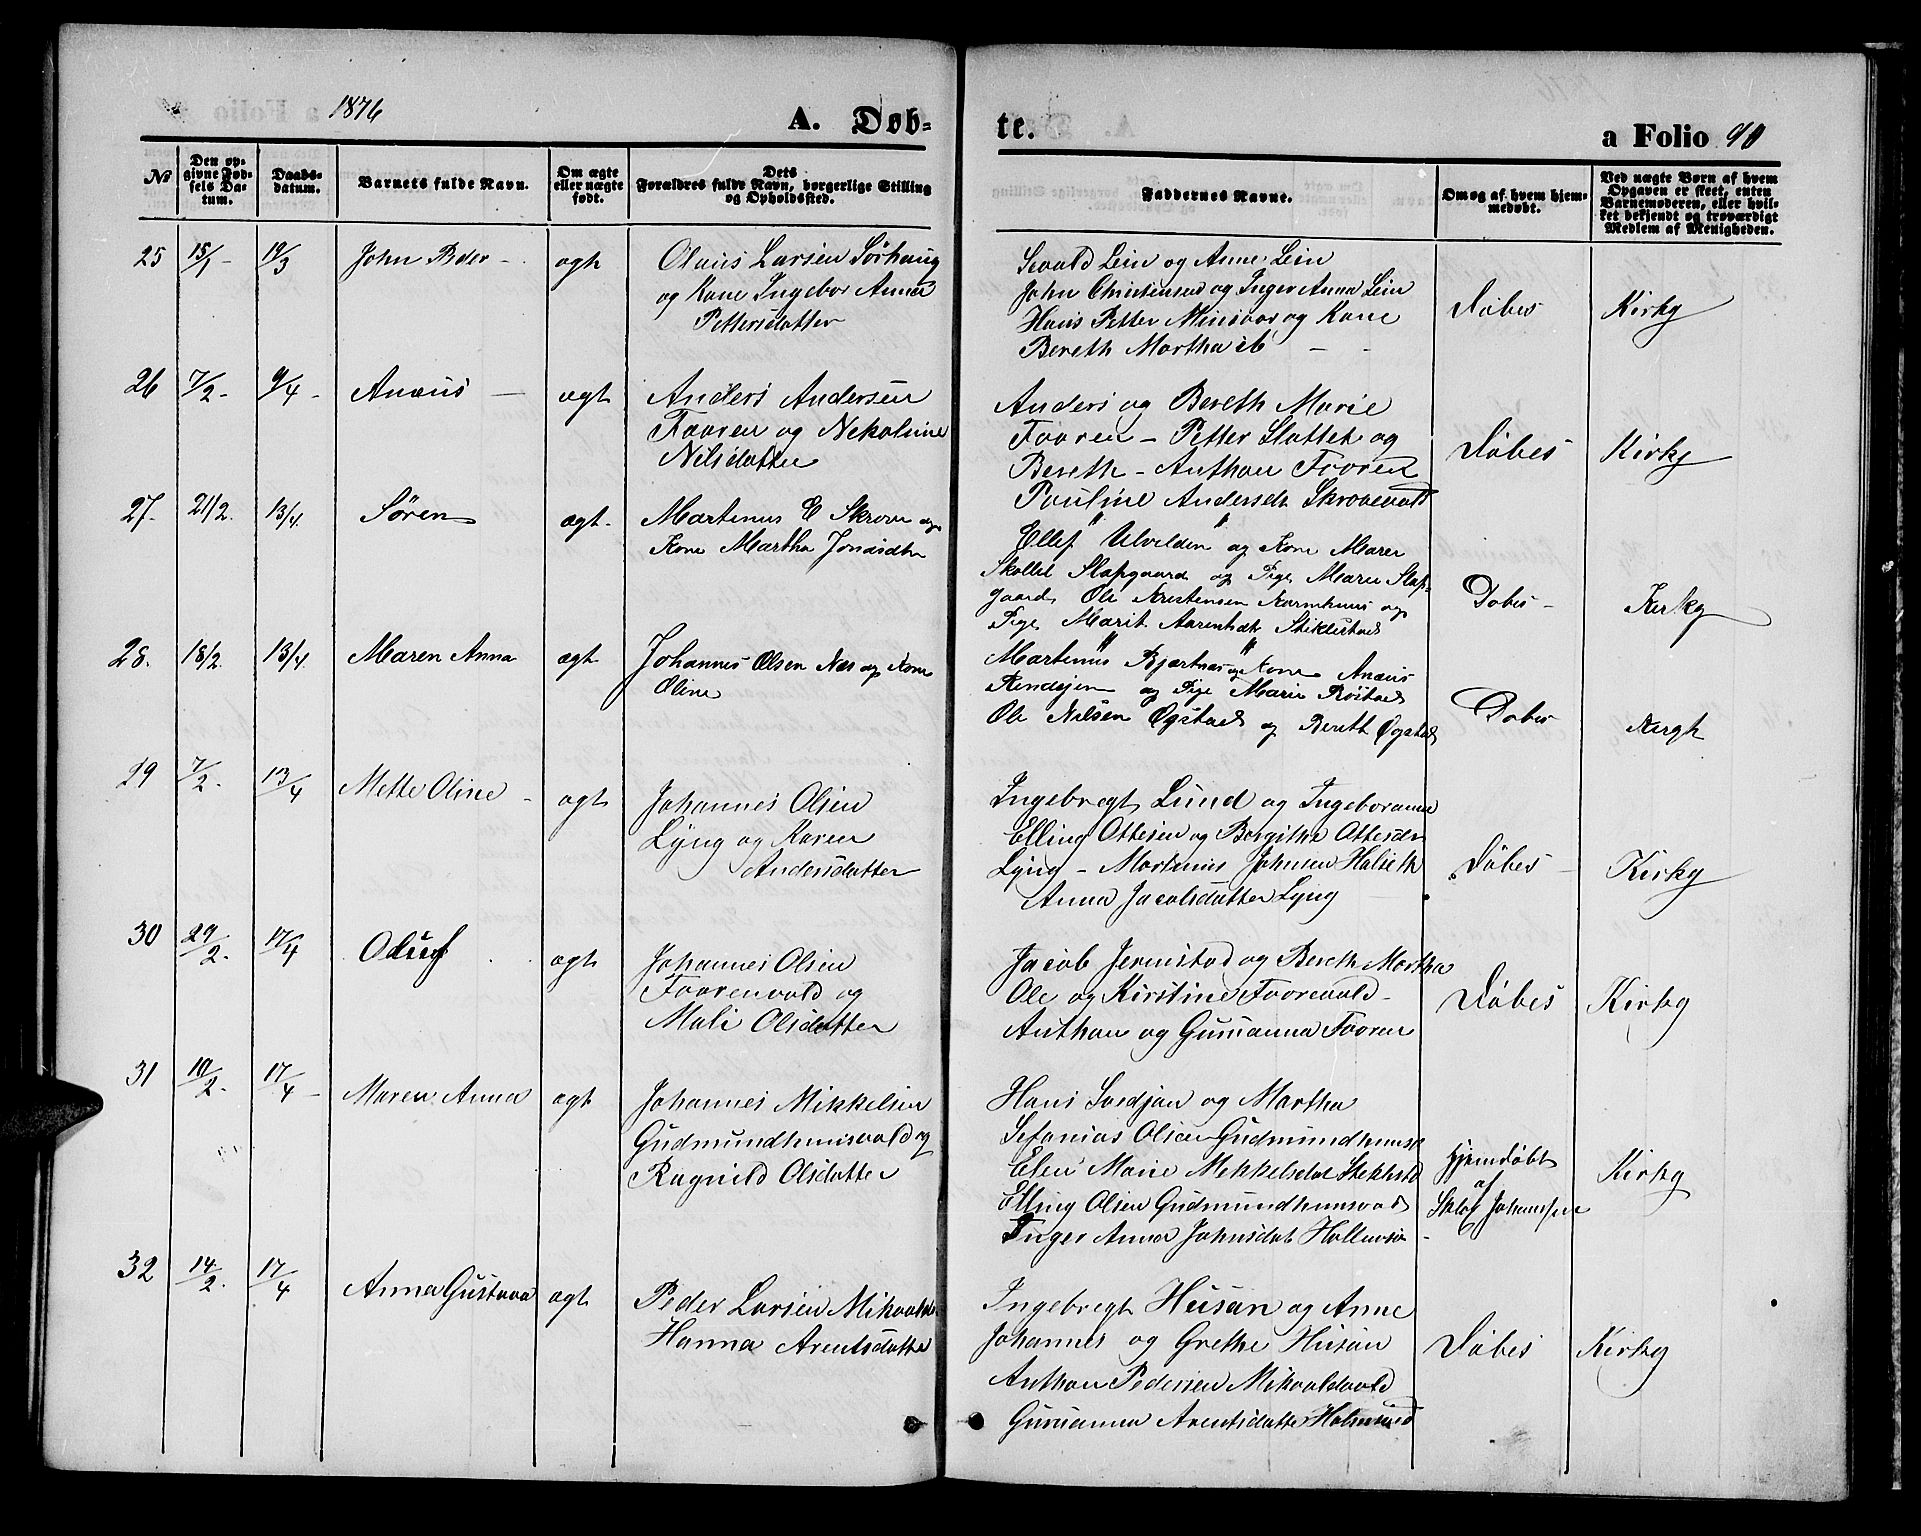 1876
A. Døb-
te.
a Folio 90
No
Den op-
givne Fød-
sels Da-
tum.
Daabs-
datum.
Barnets fulde Navn.
Om ægte
eller uægte
født.
Dets
Forældres fulde Navn, borgerlige Stilling
og Opholdssted.
Faddernes Navne.
Om og af hvem hjem-
medøbt.
Ved uægte Børn af hvem
Opgaven er skeet, enten
Barnemoderen, eller hvil-
ket bekjendt og troværdigt
Medlem af Menigheden.
25 15/1 - 19/3 John Peder - ægte
Olaus Larsen Sørhaug
og Kone Ingebor Anna
Pettersdatter
Sivald Lein og Anne Lein
John Christensen og Inger Anna Lein
Hans Petter Minsaas og Kone
Bereth Martha ib - -
Døbes Kirky
26 7/2 - 9/4 - Anæus - ægt
Anders Andersen
Faaren og Nekoline
Nilsdatter
Anders og Bereth Marie
Faaren - Petter Slottet og
Bereth - Anthon Faaren
Pauline Andersdt Skrovevald
Døbes Kirky
27. 21/2. 13/4. Søren ægt.
Martinus E Skrove og
Kone Martha Jonasdtr
Ellef Ulvilden og Kone Maren
Skollel Slapgaard og Pige Maren Slap-
gaard, Ole Kristensen Kormhuus og
Pige Marit Aarentsdt Stiklestad
Døbes - Kirky
28. 18/2. 13/4. Maren Anna ægt
Johannes Olsen Næs og Kone
Oline
Martinus Bjartnæs og Kone Anæus
Rindsjem og Pige Marie Røstad
Ole Nilsen Øgstad og Bereth Øgstad
Døbes Kirgh
29 7/2. 13/4 Mette Oline - ægt
Johannes Olsen
Lyng og Karen
Andersdatter
Ingebregt Lund og Ingeboranna
Elling Ottesen og Borgithe Ottesdtr
Lyng - Martinus Johnsen Halseth
Anna Jacobsdatter Lyng
Døbes - Kirky
30 29/2. 17/4 Oluf ægt
Johannes Olsen
Faarenvald og
Mali Olsdatter
Jacob Jermstad og Bereth Martha
Ole og Kirstine Faarevald -
Anthon og Gurianna Faaren
Døbes Kirky
31 10/2. 17/4 - Maren Anna ægt
Johannes Mikkelsen
Gudmundhusvald og
Ragnild Olsdatter
Hans Sordjan og Martha
Sefanias Olsen Gudmundhuusv
Elen Marie Mikkelsdat Steklstd
Elling Olsen Gudmundhusvald
Inger Anna Johnsdat
Hjemdøbt
af
Johannsen
Kirky
32 14/2. 17/4 Anna Gustava ægt
Peder Larsen Mikvold
Hanna Arentsdatter
Ingebregt Husan og Anne
Johannes og Grethe Husan
Anthon Pedersen Mikvoldvald
Gurianna Arentsdatter Holmund
Døbes Kirky